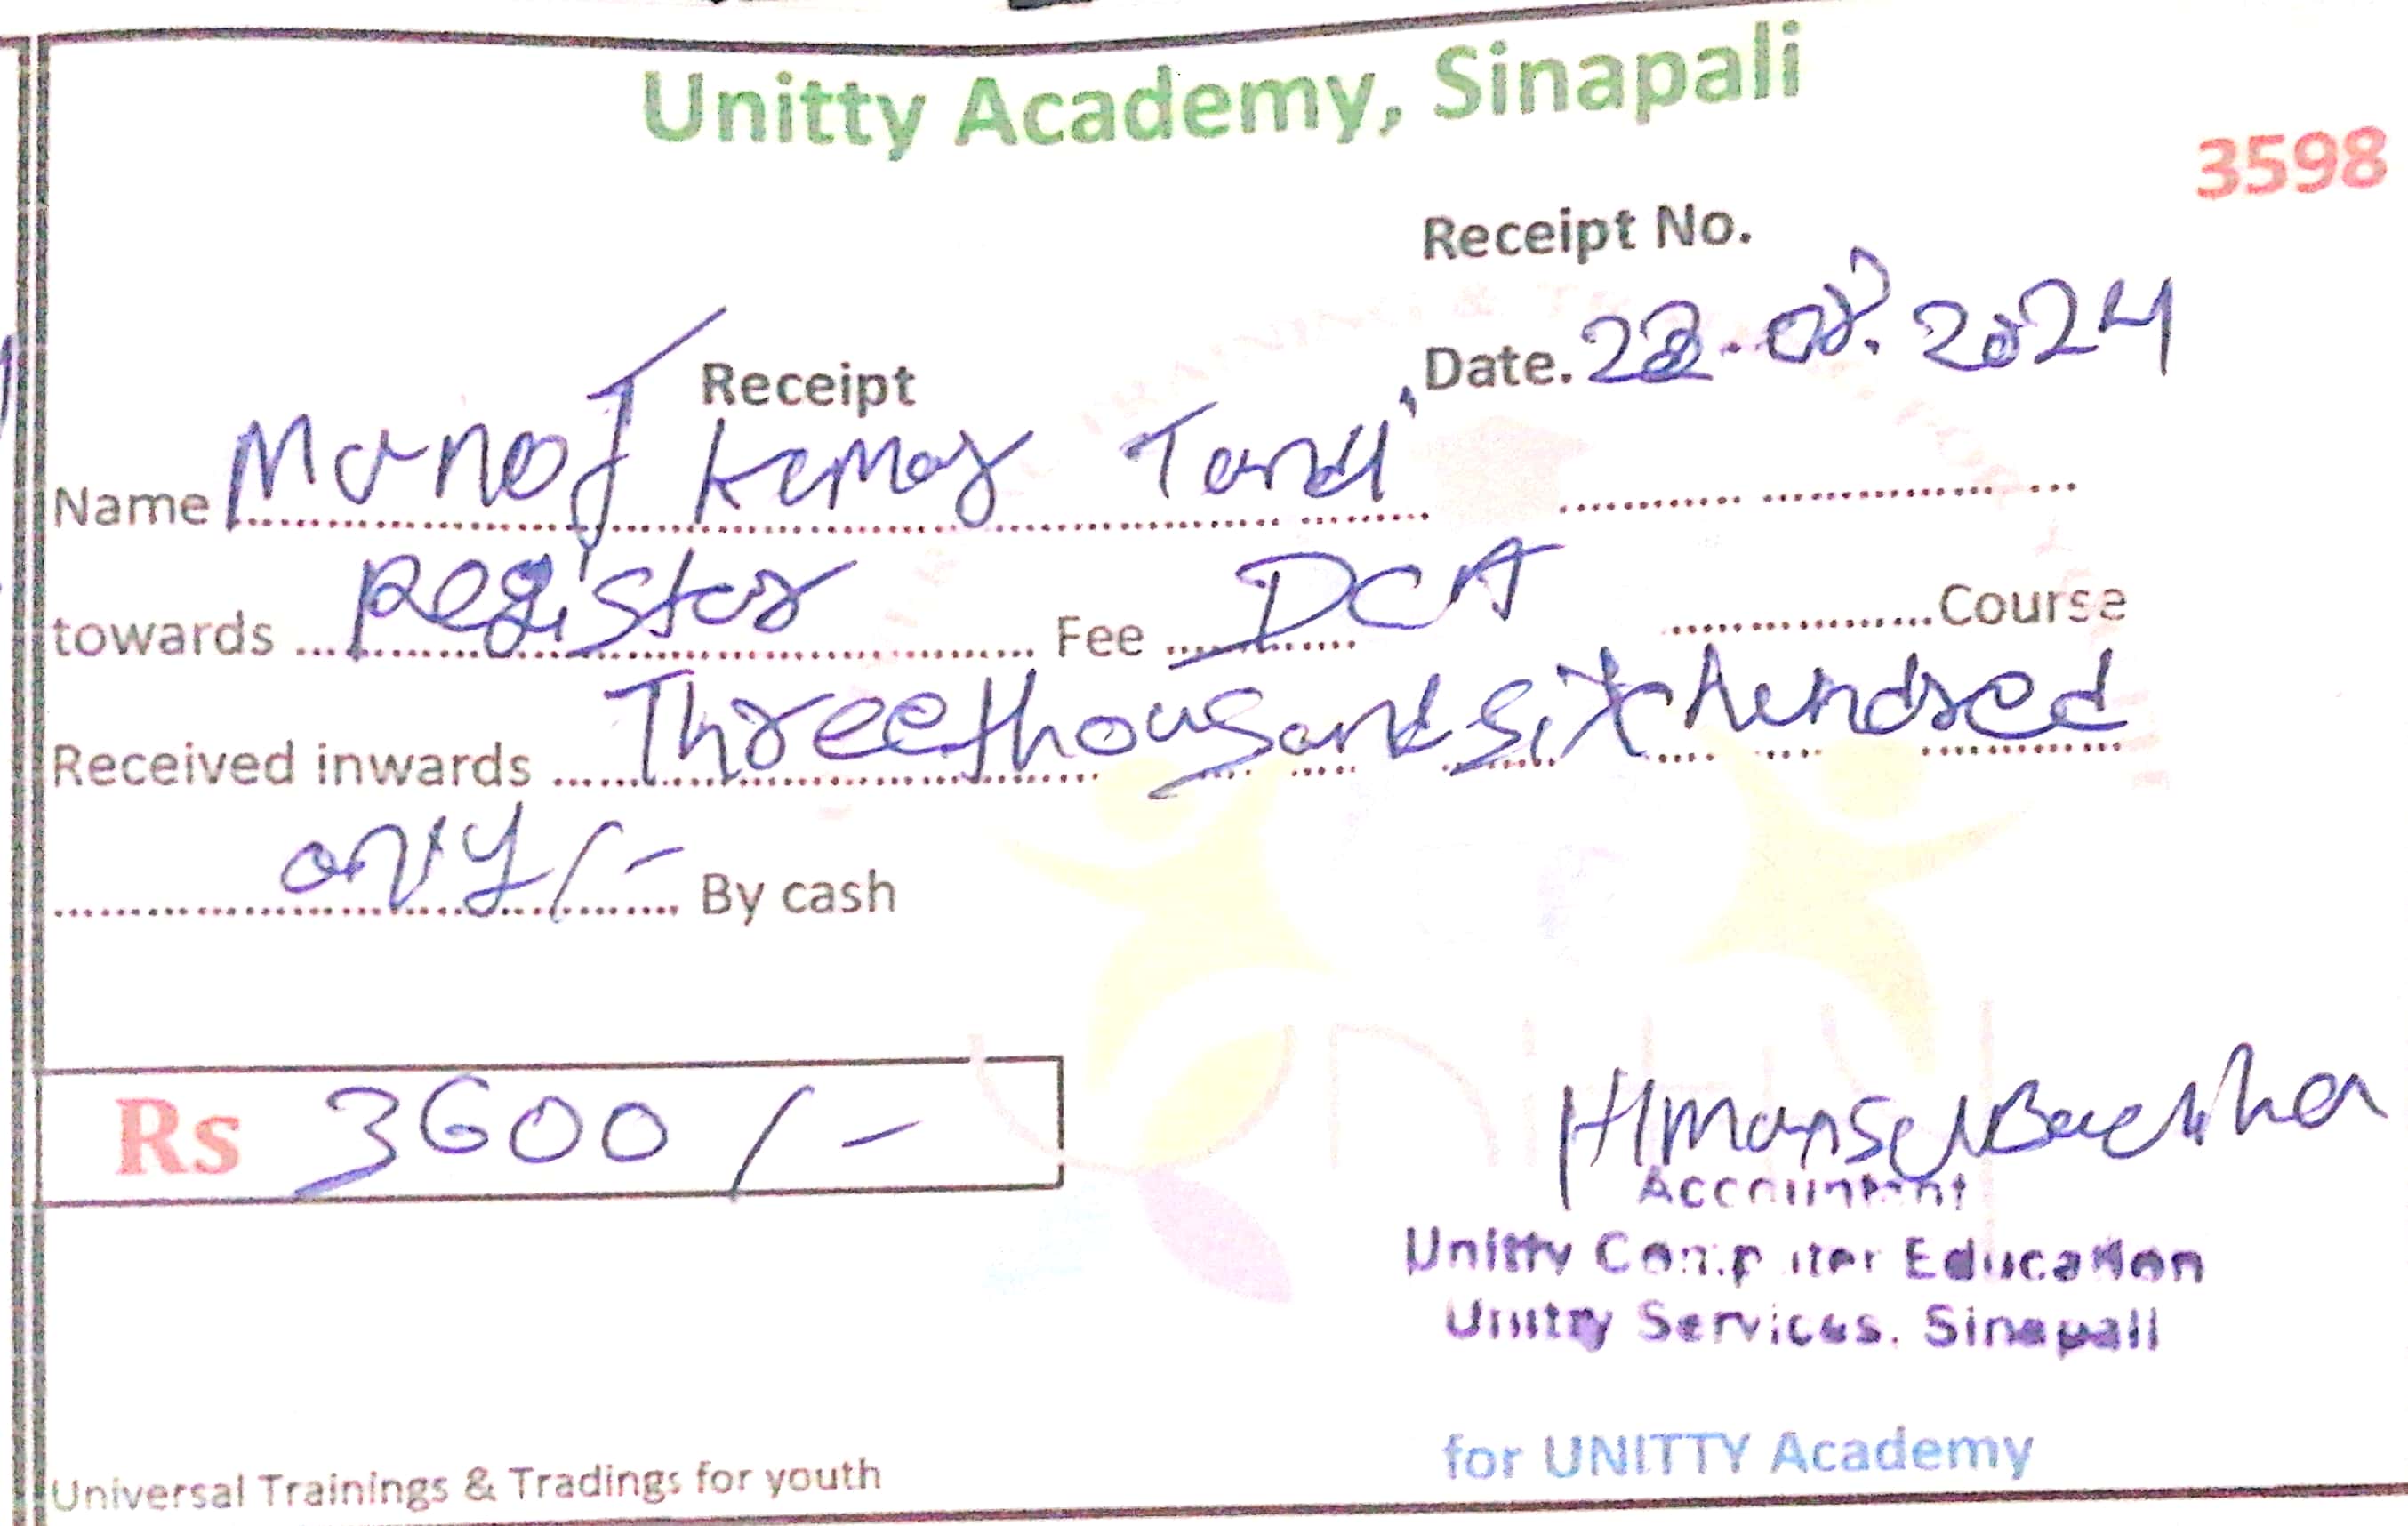 Unitty Academy, Sinapali
3598
Receipt No.
Date. 23.08.2024
Receipt
Name Manoj Kumar Tandi
towards Register Fee DCA Course
Received inwards Three thousand six hundred
only/- By cash
Rs 3600/-
Himansu
Accountant
Unitty Computer Education
Unitty Services. Sinapali
for UNITTY Academy
Universal Trainings & Tradings for youth